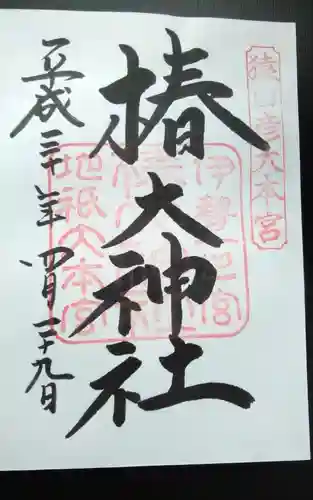 猿田彦大本宮
椿大神社
伊勢一之宮
地祇大本宮
平成三十年四月二十九日